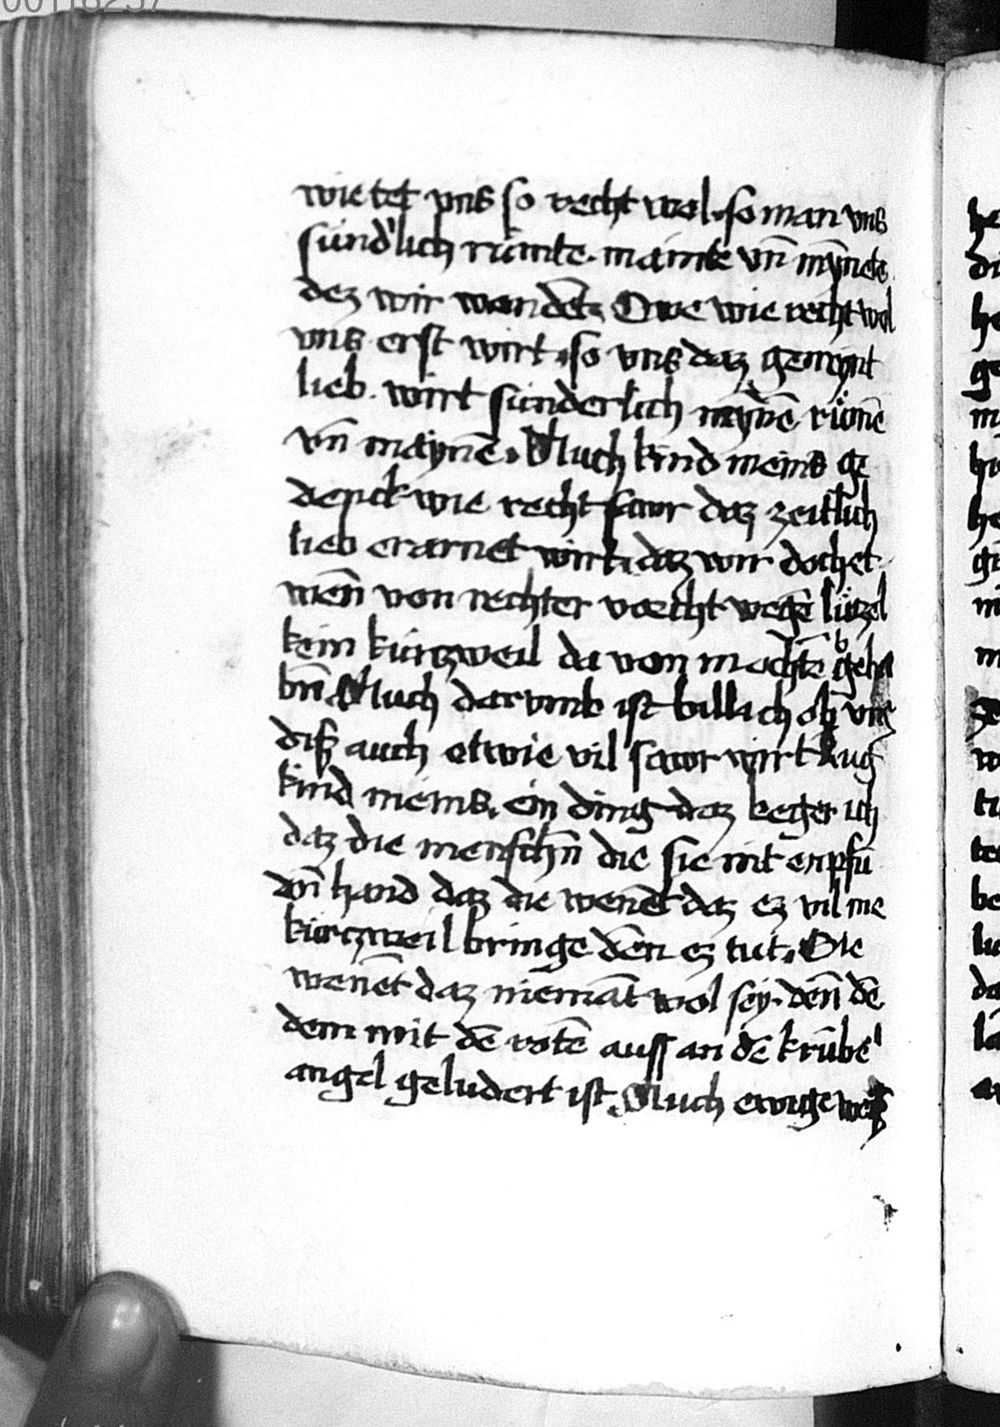 wie tet vns so recht wol. so man vns
sünd'lich rümte. mainte vn̄ mȳnete
dez wir wondēt Owe wie recht wol
vns erst wirt. so vns daz gemynt
lieb. wirt sünderlich mȳnē rümē
vn̄ maynē. Auch kind meins ge
denck wie recht sawr daz zeitlich
lieb erarnet wirt. daz wir doch et
wen̄ von rechter vorcht wegē lützel
kein kürtzweil da von möchtē geha
bn̄ Auch darvmb ist billich ob vns
diß auch etwie vil sawr wirt Lug
kind meins. ein ding daz beger ich
daz die menschn̄ die sie nit enpfū
dn̄ hand daz die wenēt daz ez vil me
kürczweil bringe den̄ ez tut. Die
wenēt daz niemāt wol sey. den̄ dē
dem mit dē rotē auss an dē krūbē
angel geludert ist. Auch ewige weiß